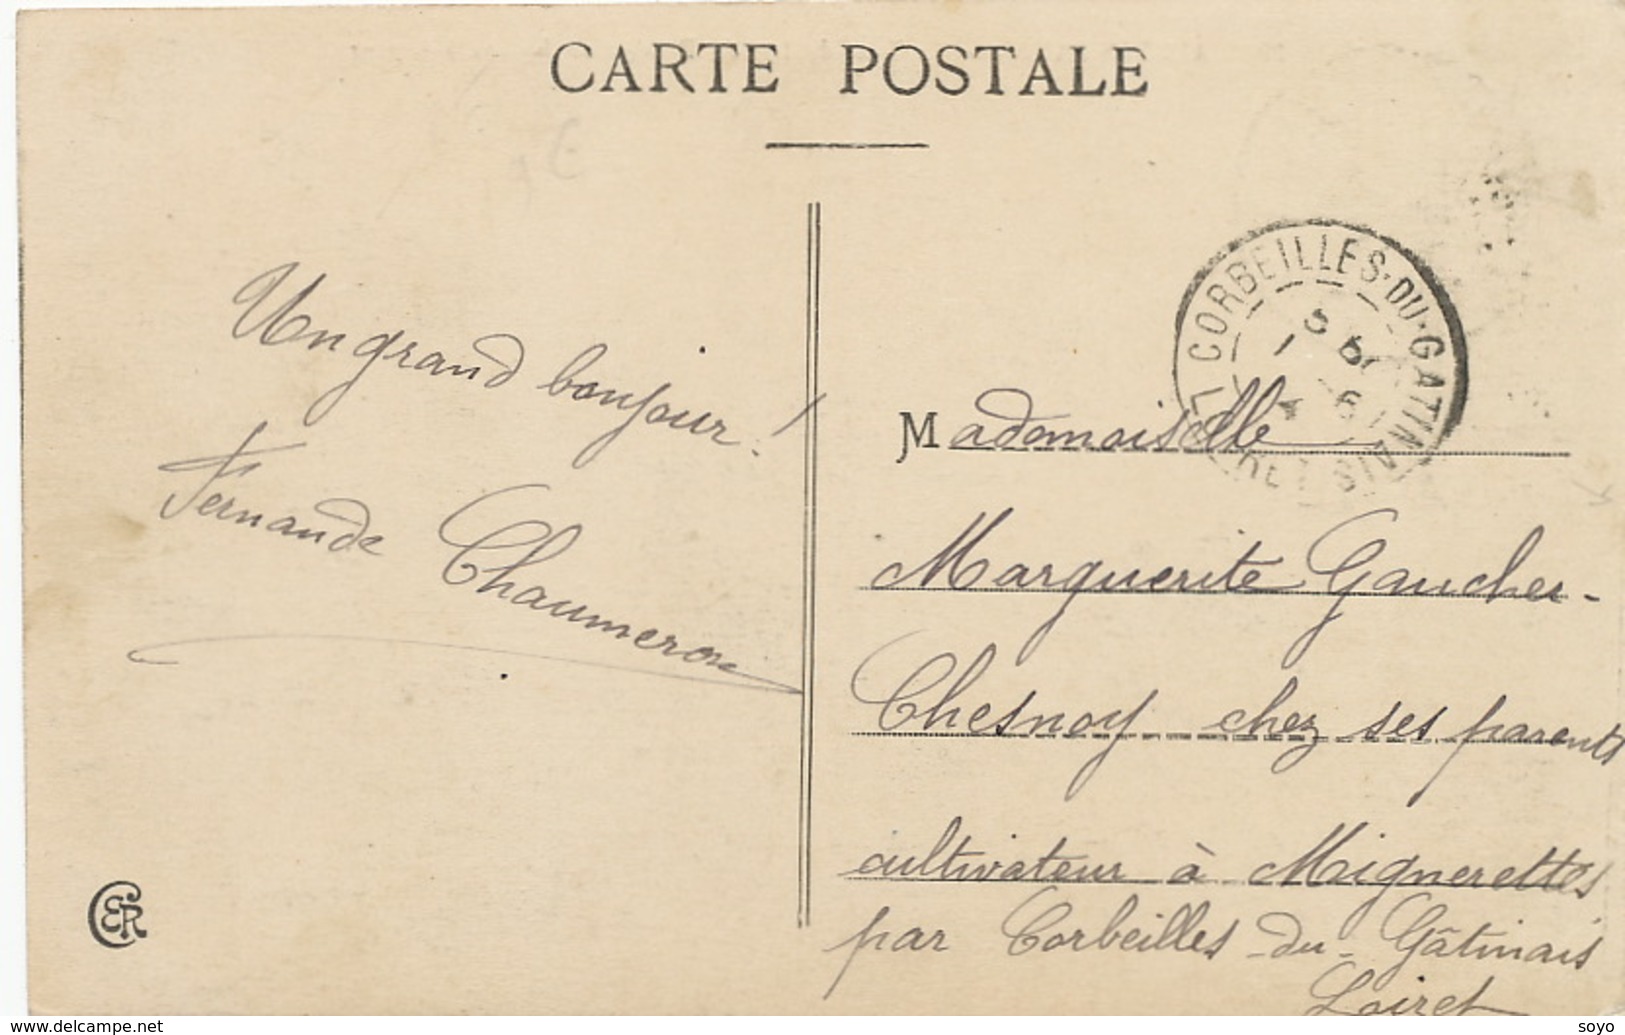 CARTE POSTALE
Un grand bonjour !
Fernande Chaumeron
CORBEILLES-DU-GATINAIS
Mademoiselle
Marguerite Gaucher-
Chesnoy chez ses parents
cultivateur à Mignerettes
par Corbeilles-du-Gâtinais
Loiret
CER
www.delcampe.net
soyo